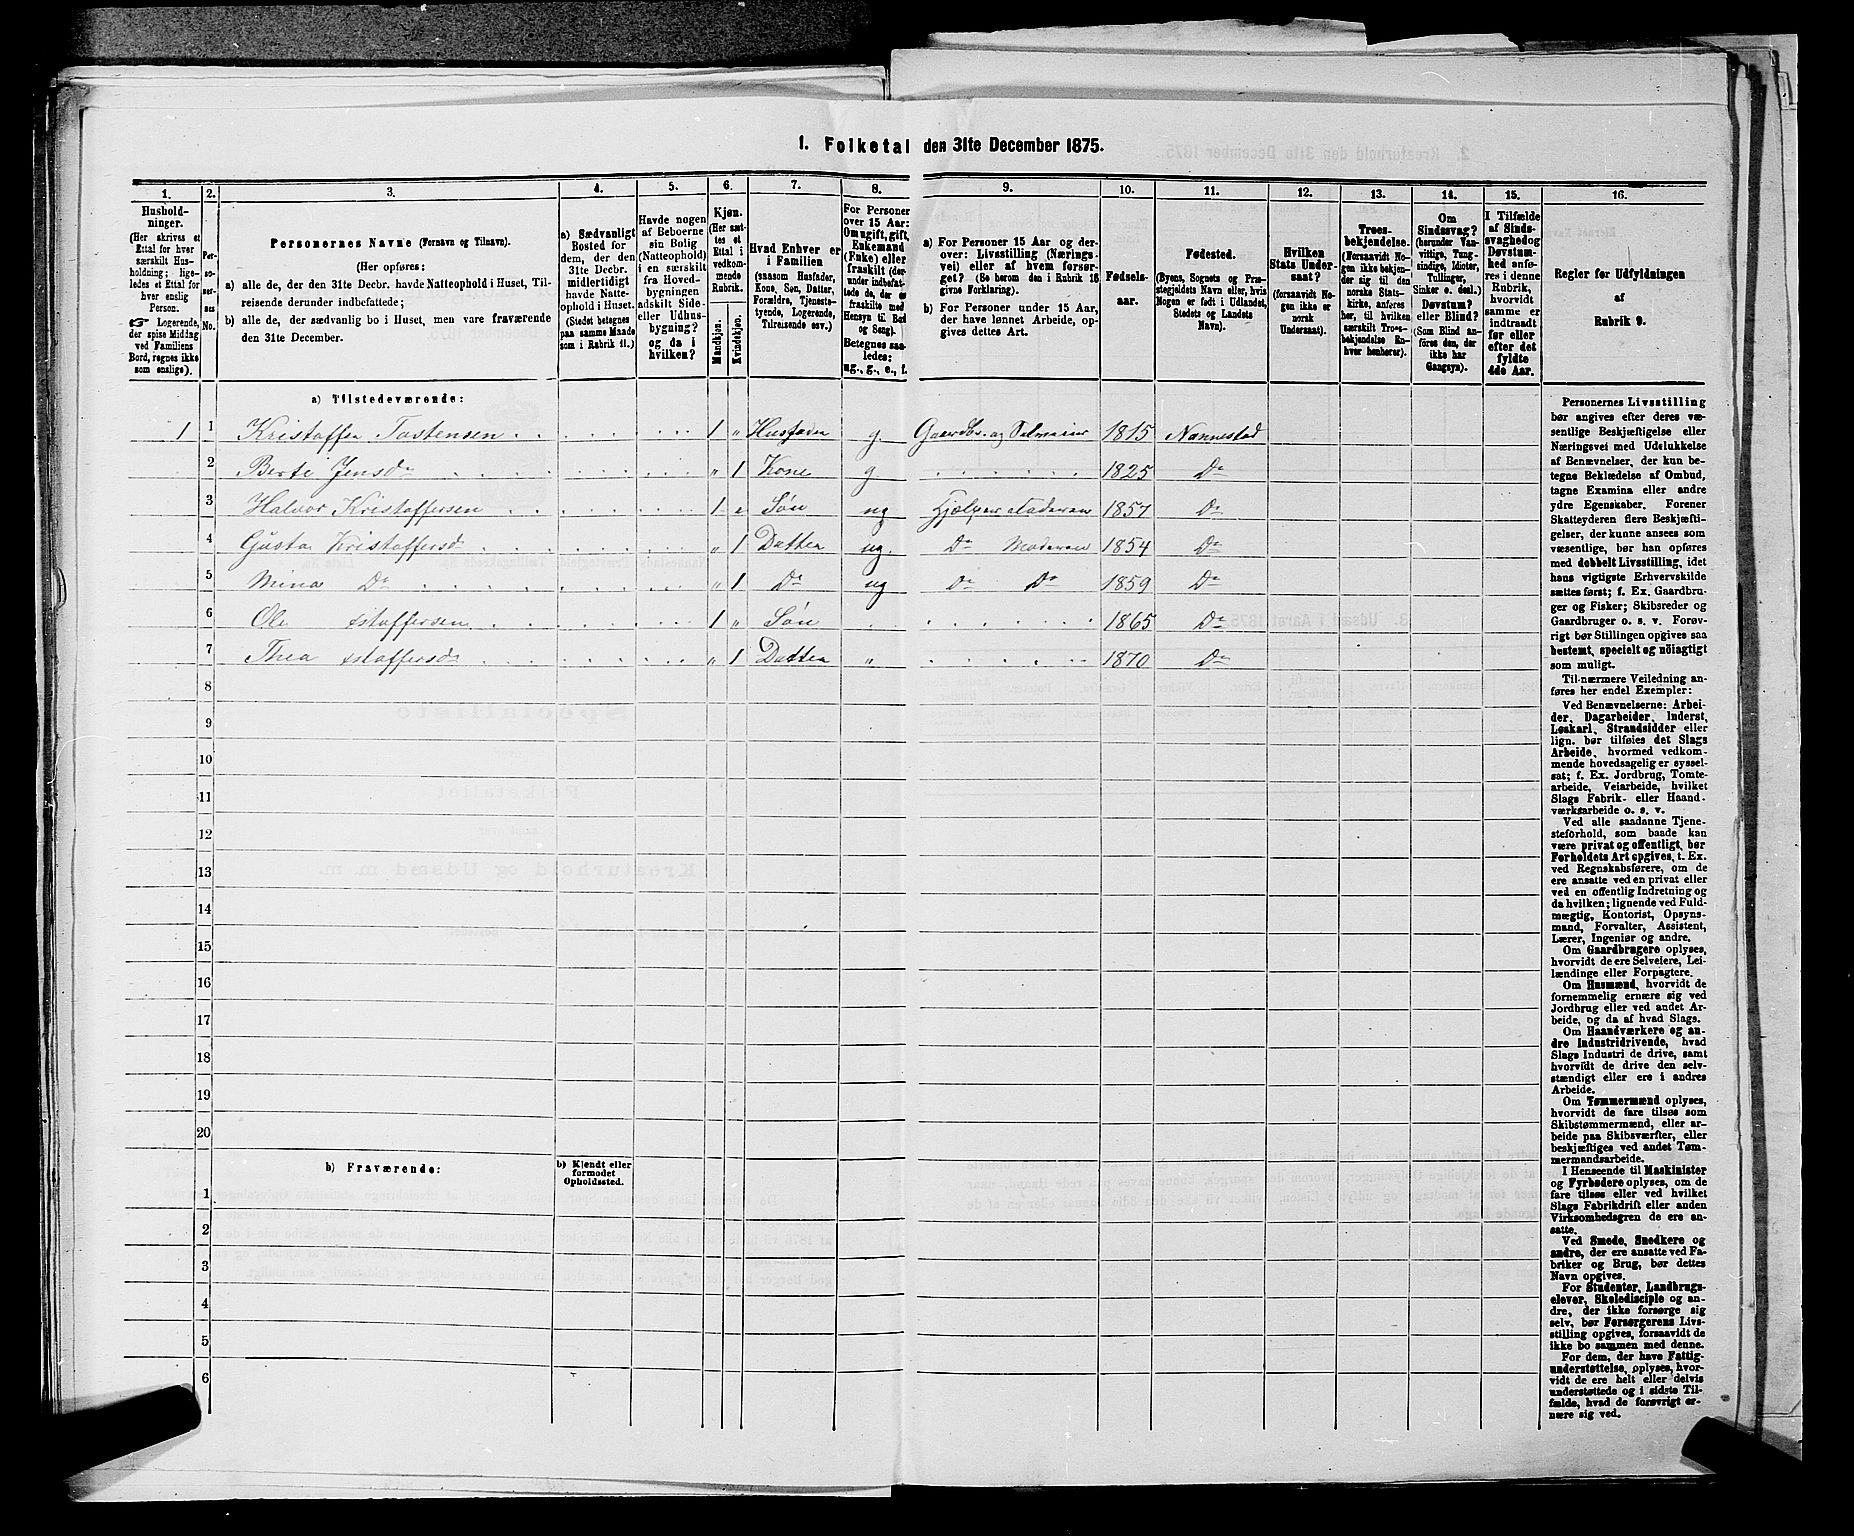 1. Folketal den 31te December 1875.
1.
Hushold-
ninger.
(Her skrives et
Ettal for hver
særskilt Hus-
holdning; lige-
ledes et Ettal for
hver enslig
Person.
☞ Logerende,
der spise Middag
ved Familiens
Bord, regnes ikke
som enslige).
2.
Per-
so-
ner-
nes
No.
3.
Personernes Navne (Fornavn og Tilnavn).
(Her opføres:
a) alle de, der den 31te Decbr. havde Natteophold i Huset, Til-
reisende derunder indbefattede;
b) alle de, der sædvanlig bo i Huset, men vare fraværende
den 31te December.
4.
a) Sædvanligt
Bosted for
dem, der den
31te Decbr.
midlertidigt
havde Natte-
ophold i Huset.
(Stedet betegnes
paa samme Maade
som i Rubrik 11.)
5.
Havde nogen
af Beboerne
sin Bolig
(Natteophold)
i en særskilt
fra Hoved-
bygningen
adskilt Side-
eller Udhus-
bygning?
og da i
hvilken?
6.
Kjøn.
(Her sæt-
tes et
Ettal i
vedkom-
mende
Rubrik.
Mandkjøn.
Kvindekjøn.
7.
Hvad Enhver er
i Familien
(saasom Husfader,
Kone, Søn, Datter,
Forældre, Tjeneste-
tyende, Logerende,
Tilreisende osv.)
8.
For Personer
over 15 Aar:
Om ugift, gift,
Enkemand
(Enke) eller
fraskilt (der-
under indbefat-
tede de, der ere
fraskilte med
Hensyn til Bord
og Seng).
Betegnes saa-
ledes:
ug., g., e., f.
9.
a) For Personer 15 Aar og der-
over: Livsstilling (Nærings-
vei) eller af hvem forsør-
get. (Se herom den i Rubrik 16
givne Forklaring).
b) For Personer under 15 Aar,
der have lønnet Arbeide, op-
gives dettes Art.
10.
Fødsels-
aar.
11.
Fødested.
(Byens, Sognets og Præ-
stegjeldets Navn eller, hvis
Nogen er født i Udlandet,
Stedets og Landets
Navn).
12.
Hvilken
Stats Under-
saat?
(forsaavidt No-
gen ikke er
norsk
Undersaat).
13.
Troes-
bekjendelse.
(Forsaavidt No-
gen ikke bekjen-
der sig til den
norske Stats-
kirke, anføres
her, til hvilken
særskilt Troes-
bekjendelse En-
hver henhører).
14.
Om
Sindssvag?
(herunder Van-
vittige, Tung-
sindige, Idioter,
Tullinger,
Sinker o. desl.)
Døvstum?
eller Blind?
(Som Blind an-
føres den, der
ikke har
Gangsyn).
15.
I Tilfælde
af Sinds-
svaghed og
Døvstum-
hed anfø-
res i denne
Rubrik,
hvorvidt
samme er
indtraadt
før eller
efter det
fyldte
4de Aar.
16.
Regler for Udfyldningen
af
Rubrik 9.
a) Tilstedeværende:
1 1 Kristoffer Tostensen 1 „ Husfader g. Gaardbr. og Selveier 1815 Nannestad
2 Berte Jensdr „ 1 Kone g 1825 Do
3 Halvor Kristoffersen 1 „ Søn ug Hjælper Faderen 1857 Do
4 Gusta Kristoffersd „ 1 Datter ug. Do Moderen 1854 Do
5 Mina Do „ 1 Do ug Do Do 1859 Do
6 Ole stoffersen 1 „ Søn 1865 Do
7 Thea stoffersd „ 1 Datter „ 1870 Do
8
9
10
11
12
13
14
15
16
17
18
19
20
b) Fraværende:
b) Kjendt eller
formodet
Opholdssted.
1
2
3
4
5
6
Personernes Livsstilling
bør angives efter deres væ-
sentlige Beskjæftigelse eller
Næringsvei med Udelukkelse
af Benævnelser, der kun be-
tegne Beklædelse af Ombud,
tagne Examina eller andre
ydre Egenskaber. Forener
Skatteyderen flere Beskjæfti-
gelser, der kunne ansees som
væsentlige, bør han opføres
med dobbelt Livsstilling, idet
hans vigtigste Erhvervskilde
sættes først; f. Ex. Gaardbru-
ger og Fisker; Skibsreder og
Gaardbruger o. s. v. Forøv-
rigt bør Stillingen opgives saa
bestemt, specielt og nöiagtigt
som muligt.
Til nærmere Veiledning an-
føres her endel Exempler:
Ved Benævnelserne: Arbei-
der, Dagarbeider, Inderst,
Løskarl, Strandsidder eller
lign. bør tilføies det Slags
Arbeide, hvormed vedkom-
mende hovedsagelig er syssel-
sat; f. Ex. Jordbrug, Tomte-
arbeide, Veiarbeide, hvilket
Slags Fabrik- eller Haand-
værksarbeide o. s. v.
Ved alle saadanne Tjene-
steforhold, som baade kan
være privat og offentligt, bør
Forholdets Art opgives, t. Ex.
ved Regnskabsførere, om de
ere ansatte ved en privat eller
ved en offentlig Indretning og
da hvilken; lignende ved Fuld-
mægtig, Kontorist, Opsyns-
mand, Forvalter, Assistent,
Lærer, Ingeniør og andre.
Om Gaardbrugere oplyses,
hvorvidt de ere Selveiere, Lei-
lændinge eller Forpagtere.
Om Husmænd, hvorvidt de
fornemmelig ernære sig ved
Jordbrug eller ved andet Ar-
beide, og da af hvad Slags.
Om Haandværkere og an-
dre Industridrivende, hvad
Slags Industri de drive, samt
hvorvidt de drive den selv-
stændigt eller ere i andres
Arbeide.
Om Tømmermænd oplyses,
hvorvidt de fare tilsøs som
Skibstømmermænd, eller ar-
beide paa Skibsværfter, eller
beskjæftiges ved andet Tøm-
mermandsarbeide.
I Henseende til Maskinister
og Fyrbødere oplyses, om de
fare tilsøs eller ved hvilket
Slags Fabrikdrift eller anden
Virksomhedsgren de ere an-
satte.
Ved Smede, Snedkere og
andre, der ere ansatte ved Fa-
briker og Brug, bør dettes
Navn opgives.
For Studenter, Landbrugs-
elever, Skoledisciple og an-
dre, der ikke forsørge sig
selv, bør Forsørgerens Livs-
stilling opgives, forsaavidt de
ikke bo sammen med denne.
For dem, der have Fattig-
understøttelse, oplyses, hvor-
vidt de ere helt eller delvis
understøttede og i sidste Til-
fælde, hvad de forøvrigt er-
nære sig ved.